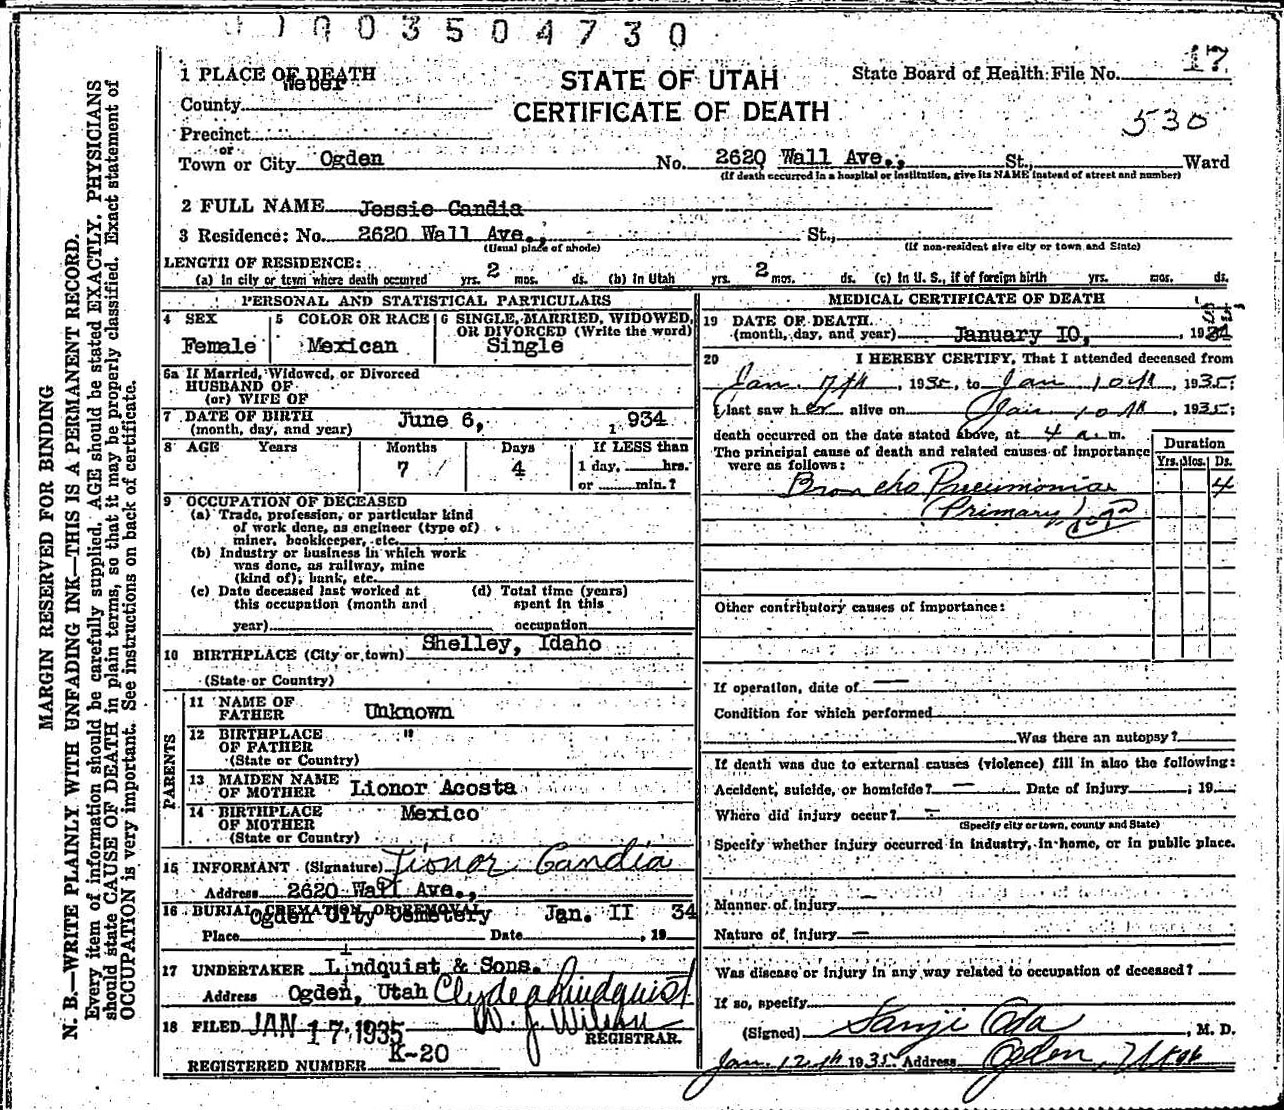 003504730
1 PLACE OF DEATH
STATE OF UTAH
State Board of Health File No. 17
County Weber
CERTIFICATE OF DEATH
530
Precinct
or
Town or City Ogden No. 2620 Wall Ave., St., Ward
(If death occurred in a hospital or institution, give its NAME instead of street and number)
2 FULL NAME Jessie Candia
3 Residence: No. 2620 Wall Ave., St.,
(Usual place of abode) (If non-resident give city or town and State)
LENGTH OF RESIDENCE:
(a) In city or town where death occurred yrs. 2 mos. ds. (b) In Utah yrs. 2 mos. ds. (c) In U. S., if of foreign birth yrs. mos. ds.
PERSONAL AND STATISTICAL PARTICULARS
4 SEX
Female
5 COLOR OR RACE
Mexican
6 SINGLE, MARRIED, WIDOWED,
OR DIVORCED (Write the word)
Single
6a If Married, Widowed, or Divorced
HUSBAND OF
(or) WIFE OF
7 DATE OF BIRTH
(month, day, and year) June 6, 1934
8 AGE Years Months Days If LESS than
7 4 1 day, hrs.
or min.?
9 OCCUPATION OF DECEASED
(a) Trade, profession, or particular kind
of work done, as engineer (type of)
miner, bookkeeper, etc.
(b) Industry or business in which work
was done, as railway, mine
(kind of), bank, etc.
(c) Date deceased last worked at
this occupation (month and
year)
(d) Total time (years)
spent in this
occupation
10 BIRTHPLACE (City or town) Shelley, Idaho
(State or Country)
PARENTS
11 NAME OF
FATHER Unknown
12 BIRTHPLACE "
OF FATHER
(State or Country)
13 MAIDEN NAME
OF MOTHER Lionor Acosta
14 BIRTHPLACE Mexico
OF MOTHER
(State or Country)
15 INFORMANT (Signature) Lionor Candia
Address 2620 Wall Ave.,
16 BURIAL CREMATION OR REMOVAL
Ogden City Cemetery Jan. II 34
Place Date , 19
17 UNDERTAKER Lindquist & Sons.
Address Ogden, Utah Clyde A Lindquist
18 FILED JAN 17 1935 W. J. Wilson
REGISTRAR.
REGISTERED NUMBER K-20
MEDICAL CERTIFICATE OF DEATH
19 DATE OF DEATH
(month, day, and year) January IO, 1934
20 I HEREBY CERTIFY, That I attended deceased from
Jan. 7th, 1935, to Jan 10th, 1935;
I last saw her alive on Jan 10th, 1935;
death occurred on the date stated above, at 4 a. m.
The principal cause of death and related causes of importance
were as follows:
Duration
Yrs. Mos. Ds.
Broncho Pneumonia 4
(Primary)
Other contributory causes of importance:
If operation, date of —
Condition for which performed
Was there an autopsy?
If death was due to external causes (violence) fill in also the following:
Accident, suicide, or homicide? — Date of injury ; 19
Where did injury occur? –
(Specify city or town, county and State)
Specify whether injury occurred in industry, in home, or in public place.
Manner of injury —
Nature of injury —
Was disease or injury in any way related to occupation of deceased?
If so, specify
(Signed) Sanji Oda, M. D.
Jan. 12th 1935 Address Ogden, Utah
MARGIN RESERVED FOR BINDING
N. B.—WRITE PLAINLY WITH UNFADING INK—THIS IS A PERMANENT RECORD.
Every item of information should be carefully supplied. AGE should be stated EXACTLY. PHYSICIANS
should state CAUSE OF DEATH in plain terms, so that it may be properly classified. Exact statement of
OCCUPATION is very important. See instructions on back of certificate.